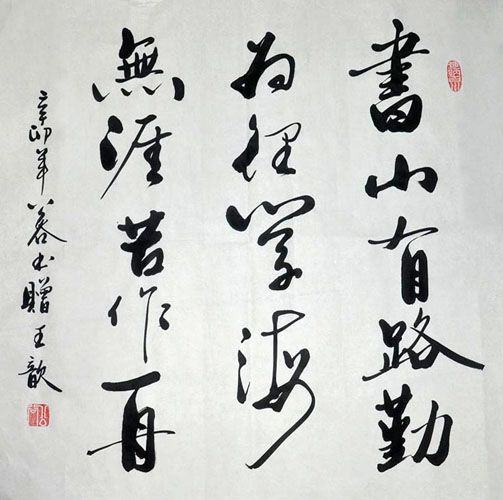 書山有路勤
为徑学海
無涯苦作舟
辛卯年书贈王歆